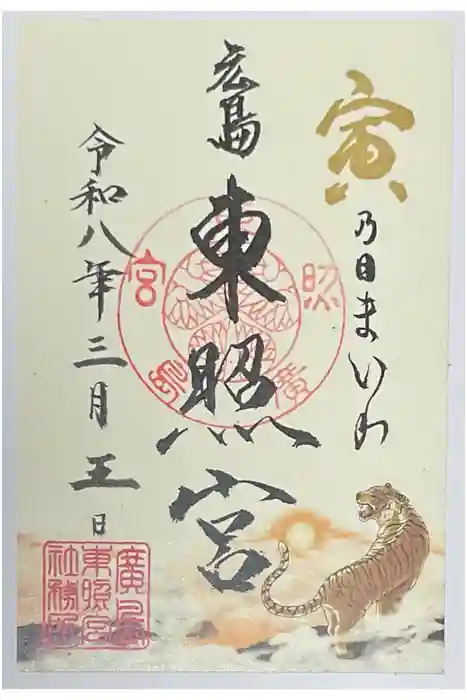 寅
乃日まいり
広島
東照宮
令和八年三月五日
廣島
照
宮
廣島
東照宮
社務所